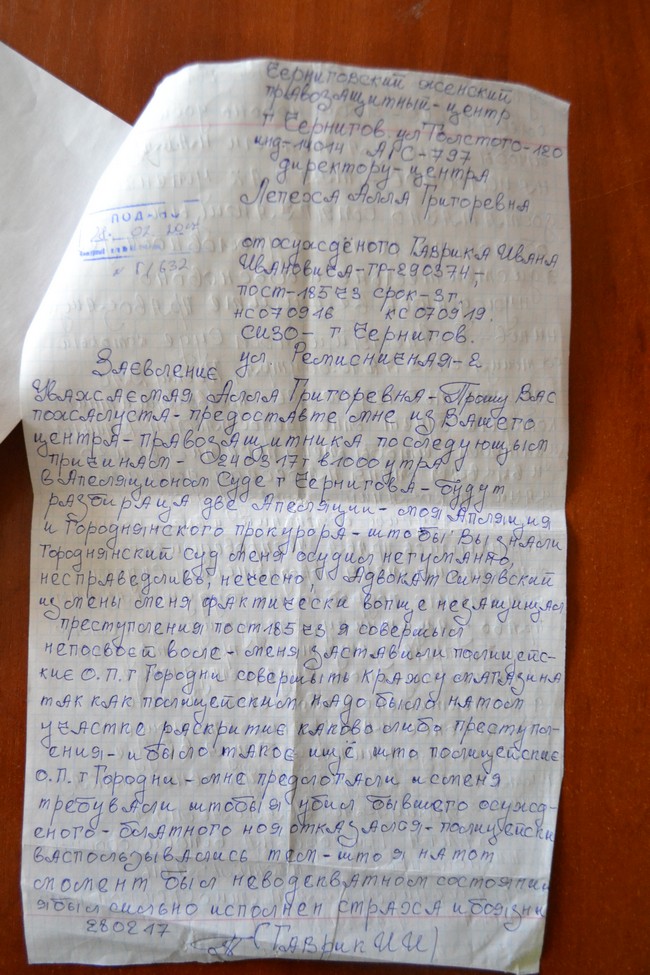 Черниговский женский
правозащитный-центр
г Чернигов. ул Толстого-120
инд-14014 АРС-797
директору-центра
Лепеха Алла Григоревна
02. 2017
от осуждёного Гаврика Ивана
Ивановича-ГР-290374-,
пост-185 ч3 срок-3г.
нс070916 кс070919.
СИЗО- г Чернигов.
ул. Ремисничная-2
Заеволение
Уважаемая Алла Григоревна-Прошу Вас
пожалуста-предоставте мне из Вашего
центра-правозащитника последующым
причинам- 240317г в1000 утра
в Апеляционом Суде г Чернигова-будут
разбираца две Апеляции-моя Апляция
и Городнянского прокурора-што бы Вы знали
Городнянский суд меня осудил негуманно,
несправедливо, нечесно, Адвокат Синявский
измены меня фактически вопще незащищал
преступления пост185ч3 я совершыл
непосвоей воле-меня заставили полицейс-
кие О.П. г Городни совершыть кражу магазина
так как полицейским надо было на том
участке раскритие какова либо преступл-
ения-и было такое ищё што полицейские
О.П. г Городни-мне предлогали и сменя
требували штобы я убил бывшего осужд-
еного-блатного но я отказался-полицейски
васпользывались тем-што я на тот
момент был неводекватном состоянии
я был сильно исполнен страха и боязни
280217 (Гаврик И И)